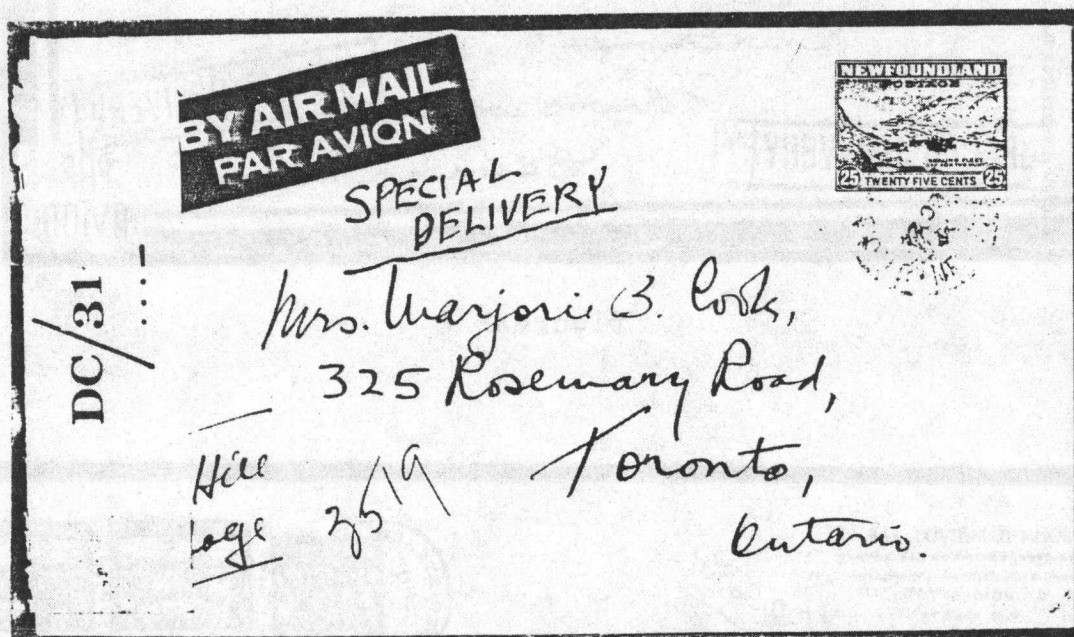 BY AIR MAIL
PAR AVION
NEWFOUNDLAND
POSTAGE
25 TWENTY FIVE CENTS 25
SPECIAL
DELIVERY
DC/31
Mrs. Marjorie B. Cook,
325 Rosemary Road,
Toronto,
Ontario.
Hill